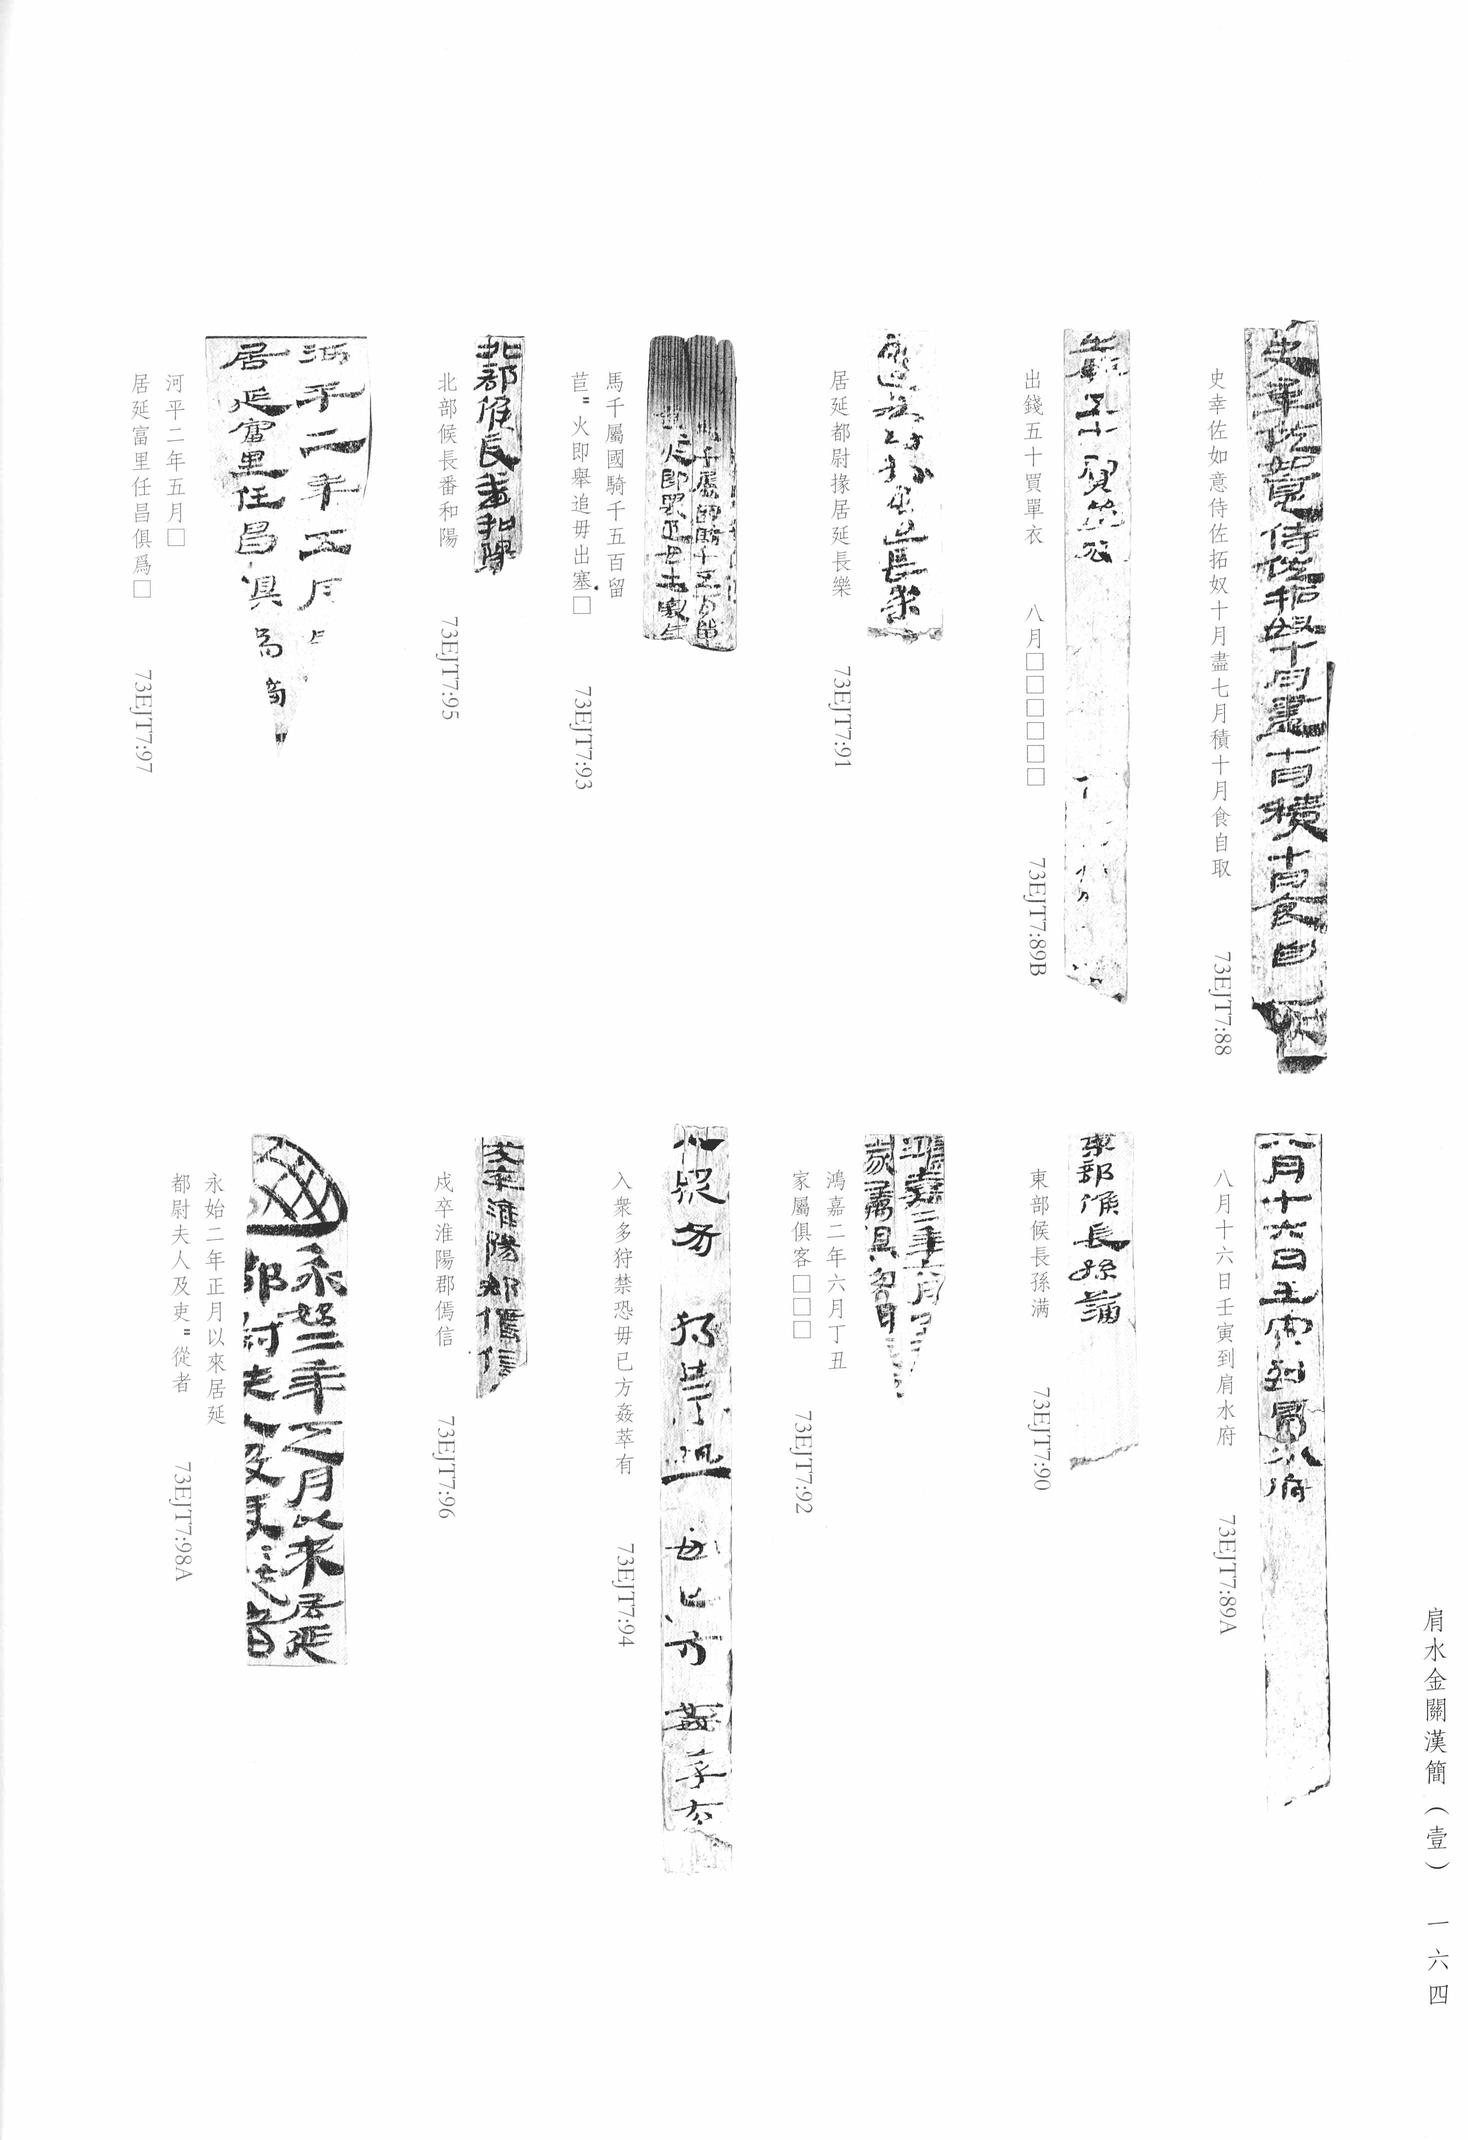 肩水金關漢簡（壹） 一六四
史幸佐如意侍佐拓奴十月盡七月積十月食自取 73EJT7:88
八月十六日壬寅到肩水府 73EJT7:89A
出錢五十買單衣 八月□□□□□□ 73EJT7:89B
東部候長孫满 73EJT7:90
居延都尉掾居延長樂 73EJT7:91
鴻嘉二年六月丁丑
家屬俱客□□□ 73EJT7:92
馬千屬國騎千五百留
苣〓火即舉追毋出塞□ 73EJT7:93
入衆多狩禁恐毋已方姦萃有 73EJT7:94
北部候長番和陽 73EJT7:95
戍卒淮陽郡傿信 73EJT7:96
河平二年五月□
居延富里任昌俱爲□ 73EJT7:97
永始二年正月以來居延
都尉夫人及吏〓從者 73EJT7:98A